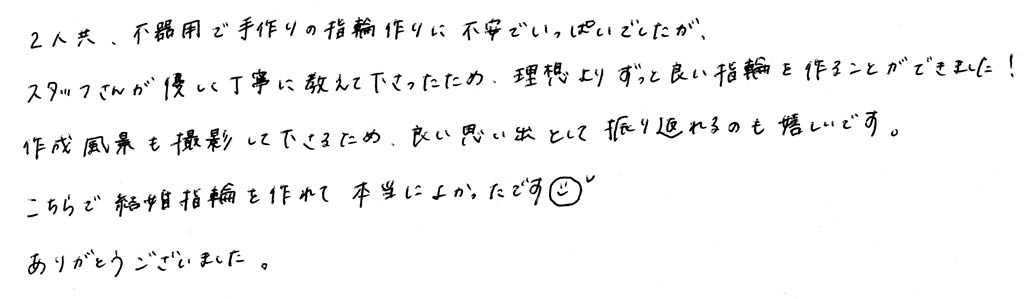 2人共、不器用で手作りの指輪作りに不安でいっぱいでしたが、
スタッフさんが優しく丁寧に教えて下さったため、理想よりずっと良い指輪を作ることができました！
作成風景も撮影して下さるため、良い思い出として振り返れるのも嬉しいです。
こちらで結婚指輪を作れて本当によかったです☺
ありがとうございました。